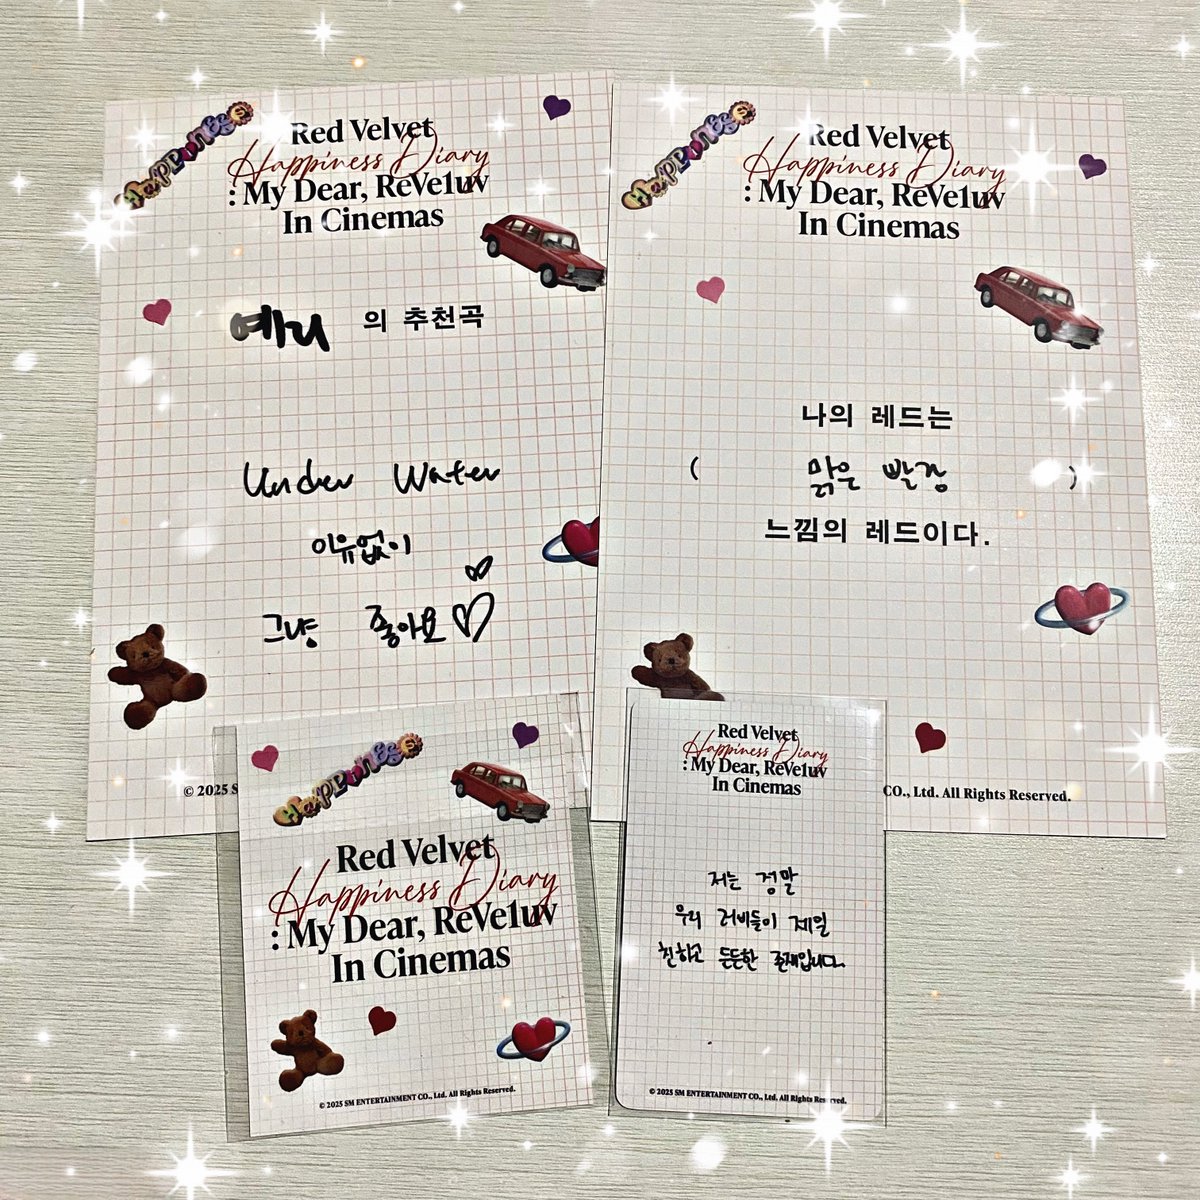 HapPiness
Red Velvet
Happiness Diary
: My Dear, ReVe1uv
In Cinemas
예리 의 추천곡
Under Water
이유없이
그냥 좋아요
© 2025 S
HapPiness
Red Velvet
Happiness Diary
: My Dear, ReVe1uv
In Cinemas
나의 레드는
( 맑은 빨강 )
느낌의 레드이다.
CO., Ltd. All Rights Reserved.
HapPiness
Red Velvet
Happiness Diary
: My Dear, ReVe1uv
In Cinemas
© 2025 SM ENTERTAINMENT CO., Ltd. All Rights Reserved.
Red Velvet
Happiness Diary
: My Dear, ReVe1uv
In Cinemas
저는 정말
우리 러비들이 제일
친하고 든든한 존재입니다.
© 2025 SM ENTERTAINMENT CO., Ltd. All Rights Reserved.